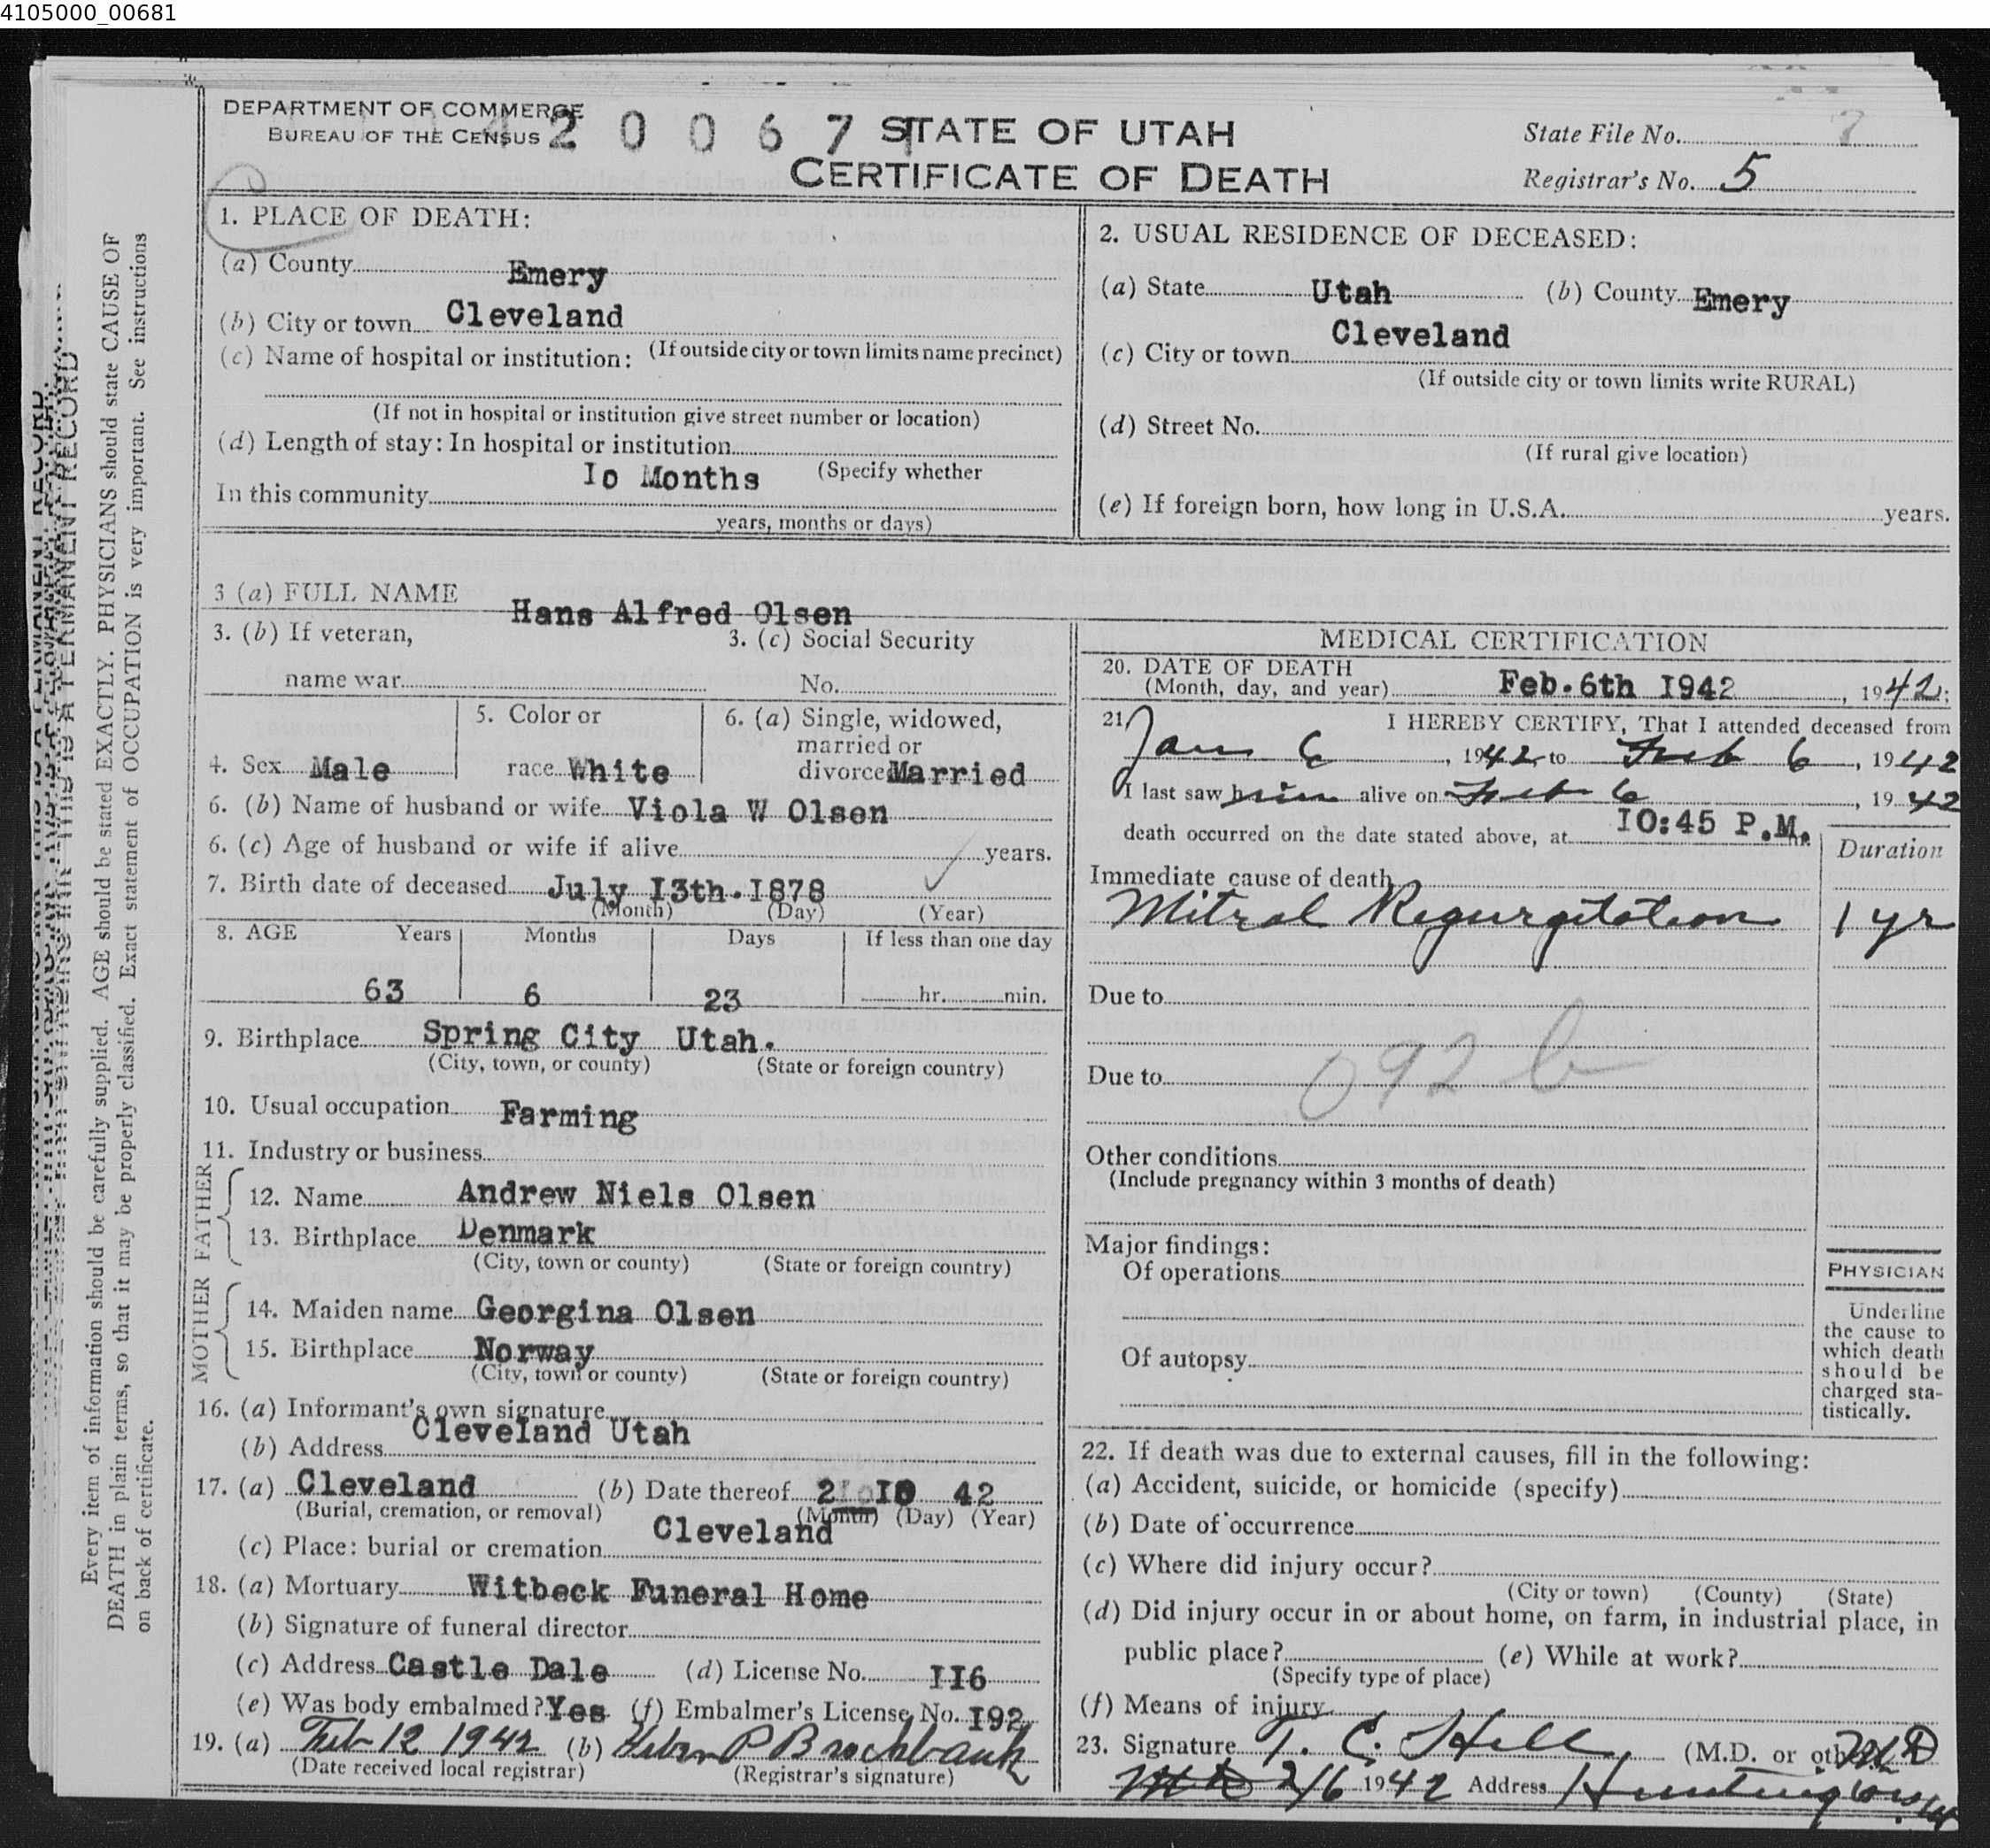 4105000_00681
DEPARTMENT OF COMMERCE
BUREAU OF THE CENSUS
4 2 0 0 6 7
STATE OF UTAH
CERTIFICATE OF DEATH
State File No.
Registrar's No. 5
1. PLACE OF DEATH:
(a) County Emery
(b) City or town Cleveland
(If outside city or town limits name precinct)
(c) Name of hospital or institution:
(If not in hospital or institution give street number or location)
(d) Length of stay: In hospital or institution
(Specify whether
In this community Io Months
years, months or days)
2. USUAL RESIDENCE OF DECEASED:
(a) State Utah (b) County Emery
(c) City or town Cleveland
(If outside city or town limits write RURAL)
(d) Street No.
(If rural give location)
(e) If foreign born, how long in U.S.A. years.
3 (a) FULL NAME Hans Alfred Olsen
3. (b) If veteran, name war
3. (c) Social Security No.
4. Sex Male
5. Color or race White
6. (a) Single, widowed, married or divorced Married
6. (b) Name of husband or wife Viola W Olsen
6. (c) Age of husband or wife if alive years.
7. Birth date of deceased July I3th. I878
(Month) (Day) (Year)
8. AGE Years Months Days If less than one day
63 6 23 hr. min.
9. Birthplace Spring City Utah.
(City, town, or county) (State or foreign country)
10. Usual occupation Farming
11. Industry or business
FATHER
12. Name Andrew Niels Olsen
13. Birthplace Denmark
(City, town or county) (State or foreign country)
MOTHER
14. Maiden name Georgina Olsen
15. Birthplace Norway
(City, town or county) (State or foreign country)
16. (a) Informant's own signature
(b) Address Cleveland Utah
17. (a) Cleveland (b) Date thereof 2 I0 42
(Burial, cremation, or removal) (Month) (Day) (Year)
(c) Place: burial or cremation Cleveland
18. (a) Mortuary Witbeck Funeral Home
(b) Signature of funeral director
(c) Address Castle Dale (d) License No. II6
(e) Was body embalmed? Yes (f) Embalmer's License No. I92
19. (a) Feb 12 1942 (b) Heber P Brockbank
(Date received local registrar) (Registrar's signature)
MEDICAL CERTIFICATION
20. DATE OF DEATH
(Month, day, and year) Feb. 6th I942, 1942;
21. I HEREBY CERTIFY, That I attended deceased from
Jan 6, 1942 to Feb 6, 1942
I last saw him alive on Feb 6, 1942
death occurred on the date stated above, at I0:45 P.M.
Duration
Immediate cause of death
Mitral Regurgitation 1 yr
Due to
092 b
Due to
Other conditions
(Include pregnancy within 3 months of death)
Major findings:
Of operations
Of autopsy
PHYSICIAN
Underline
the cause to
which death
should be
charged sta-
tistically.
22. If death was due to external causes, fill in the following:
(a) Accident, suicide, or homicide (specify)
(b) Date of occurrence
(c) Where did injury occur?
(City or town) (County) (State)
(d) Did injury occur in or about home, on farm, in industrial place, in
public place? (e) While at work?
(Specify type of place)
(f) Means of injury
23. Signature T. C. Hill (M.D. or other) M.D
2/6 1942 Address Huntington Ut
Every item of information should be carefully supplied. AGE should be stated EXACTLY. PHYSICIANS should state CAUSE OF
DEATH in plain terms, so that it may be properly classified. Exact statement of OCCUPATION is very important. See instructions
on back of certificate.
THIS IS A PERMANENT RECORD